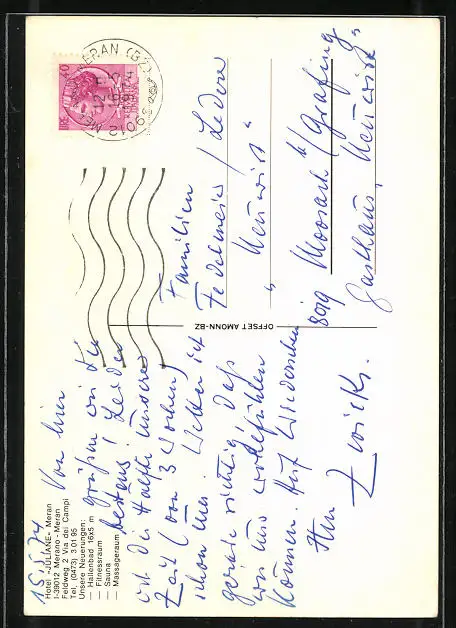 15.5.74
Hotel «JULIANE» Meran
I-39012 Merano - Meran
Feldweg, 2 Via dei Campi
Tel. (0473) 3 01 95
Unsere Neuerungen:
— Hallenbad 16x5 m
— Fitnessraum
— Sauna
— Massageraum
Von hier
grüßen wir Sie
bestens! Leider
ist die Hälfte unserer
Zeit (von 3 Wochen)
schon um. Wetter ist
gerade richtig, daß
wir uns wohlfühlen
können. Auf Wiedersehen
Ihre
OFFSET AMONN-BZ
MERAN (BZ)
Familien
Federmeier / Lederer
„Neuwirt“
8019 Moosach b/ Grafing
Gasthaus „Neuwirt“